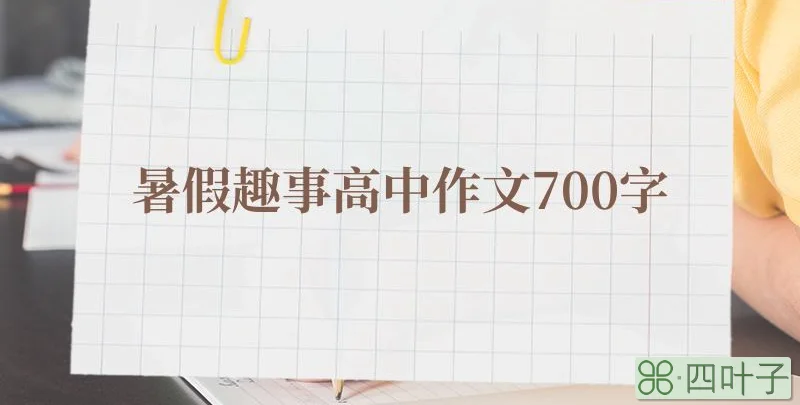 暑假趣事高中作文700字
四叶子